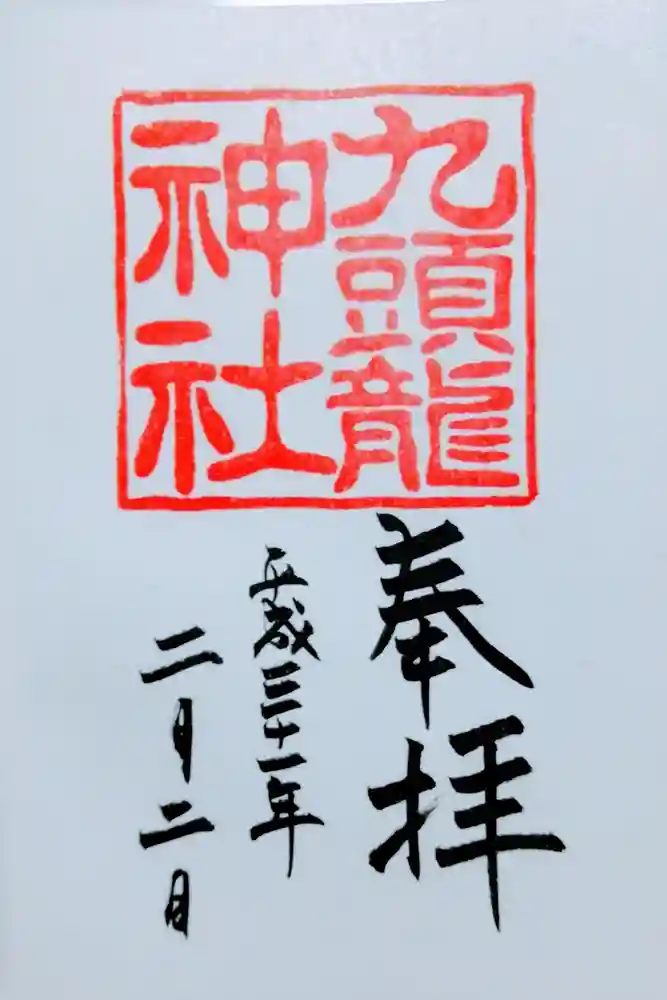 九頭龍
神社
奉拝
平成三十一年
二月二日